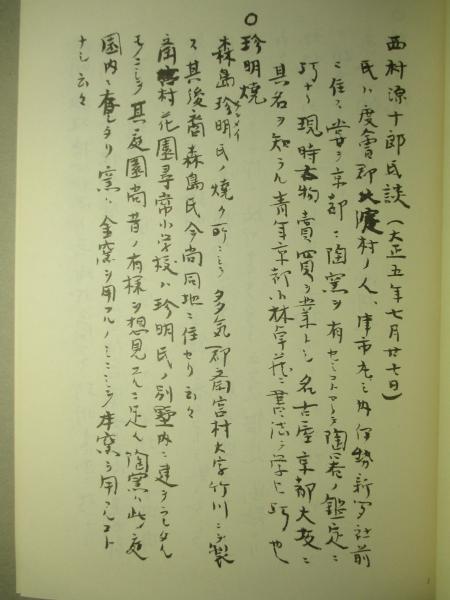 西村源十郎氏談(大正五年七月廿七日)
氏ハ度會郡北濱村ノ人、津市丸ノ内伊勢新聞社前
ニ住ス嘗テ京都ニ陶窯ヲ有セシコトアリテ陶器ノ鑑定ニ
巧ナリ現時古物賣買ヲ業トシ名古屋京都大坂ニ
其名ヲ知ラル青年京都小林卓藏ニ書法ヲ学ヒ巧也
○
珍明焼
森島珍明氏ノ焼ク所ニシテ多気郡斎宮村大字竹川ニテ製
ス其後裔森島氏今尚同地ニ住セリ云々
斎宮村花園尋常小学校ハ珍明氏ノ別墅内ニ建テラレタル
モノニシテ其庭園尚昔ノ有様ヲ想見スルニ足ル陶窯ハ此ノ庭
園内ニ在リタリ窯ハ金窯ヲ用フルノミニシテ本窯ヲ用フルコト
ナシ云々